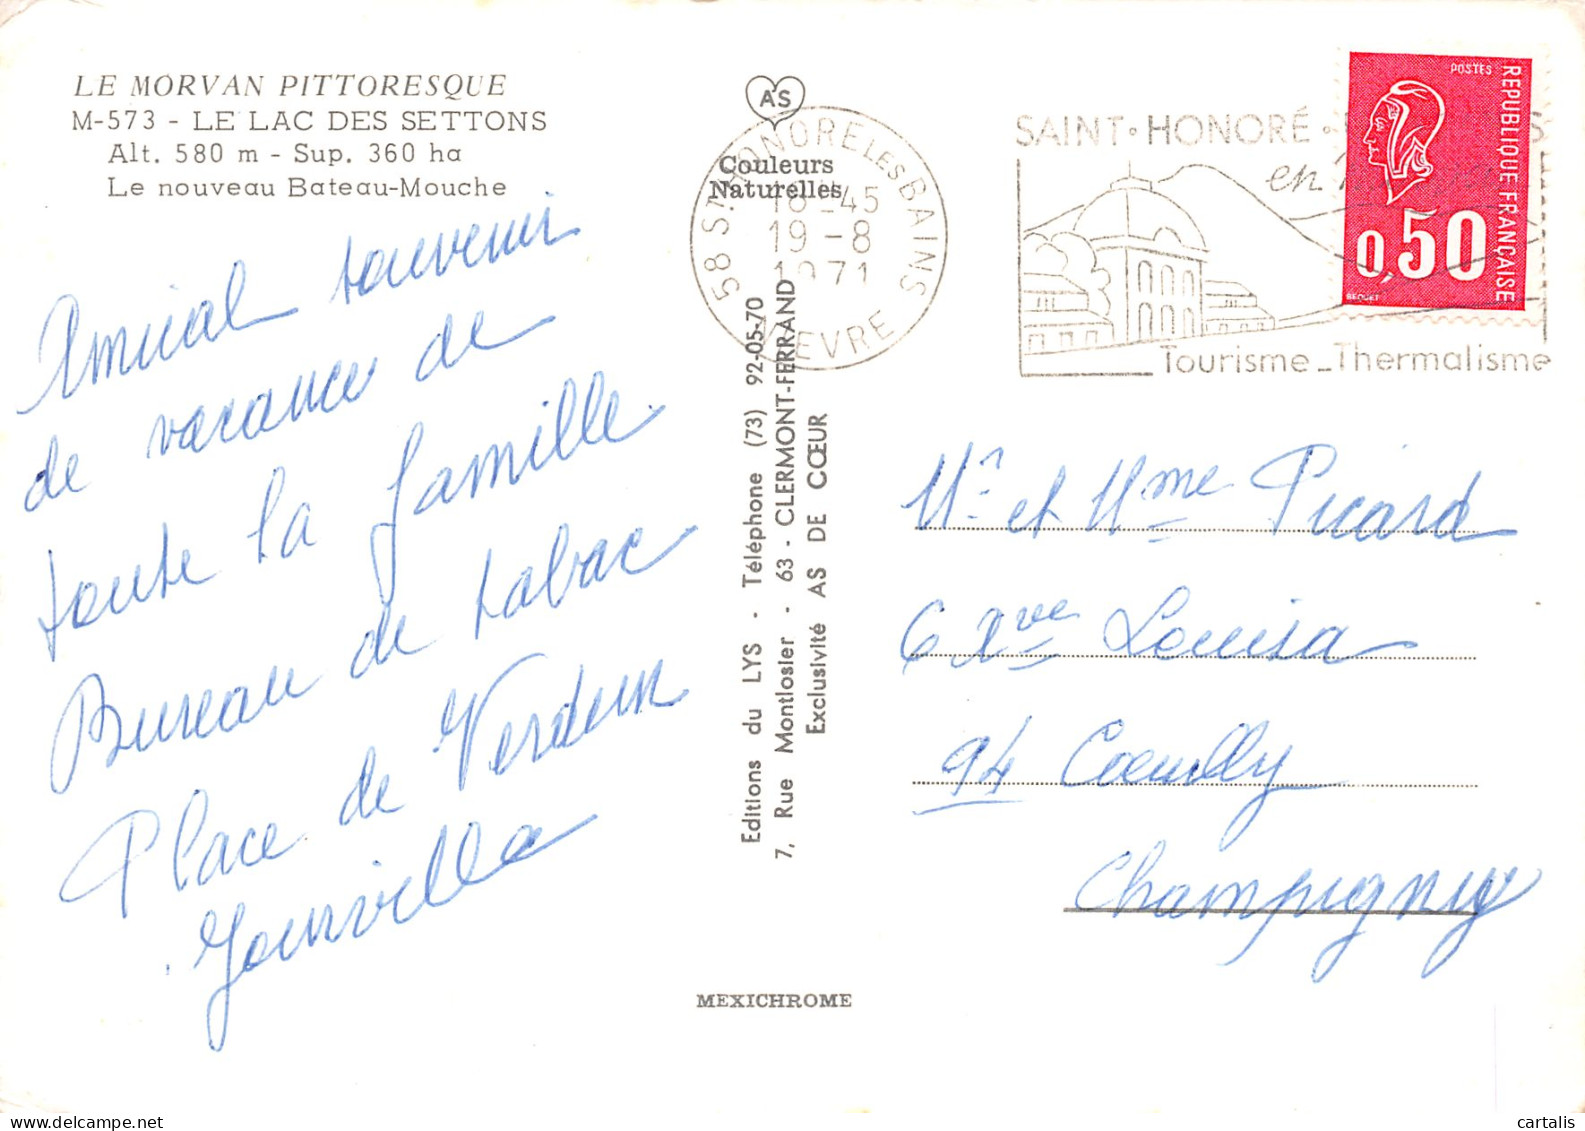 LE MORVAN PITTORESQUE
M-573 - LE LAC DES SETTONS
Alt. 580 m - Sup. 360 ha
Le nouveau Bateau-Mouche
Amical souvenir
de vacances de
toute la famille
Bureau de tabac
Place de Verdun
Joinville
AS
Couleurs
Naturelles
58 ST HONORE LES BAINS
18 - 45
19 - 8
1971
NIEVRE
Editions du LYS - Téléphone (73) 92-05-70
7, Rue Montlosier - 63 - CLERMONT-FERRAND
Exclusivité AS DE CŒUR
MEXICHROME
SAINT-HONORÉ
en
Tourisme - Thermalisme
POSTES
REPUBLIQUE FRANÇAISE
0,50
BEQUET
Mr et Mme Picard
6 Ave Louisa
94 Coeuilly
Champigny
cartalis